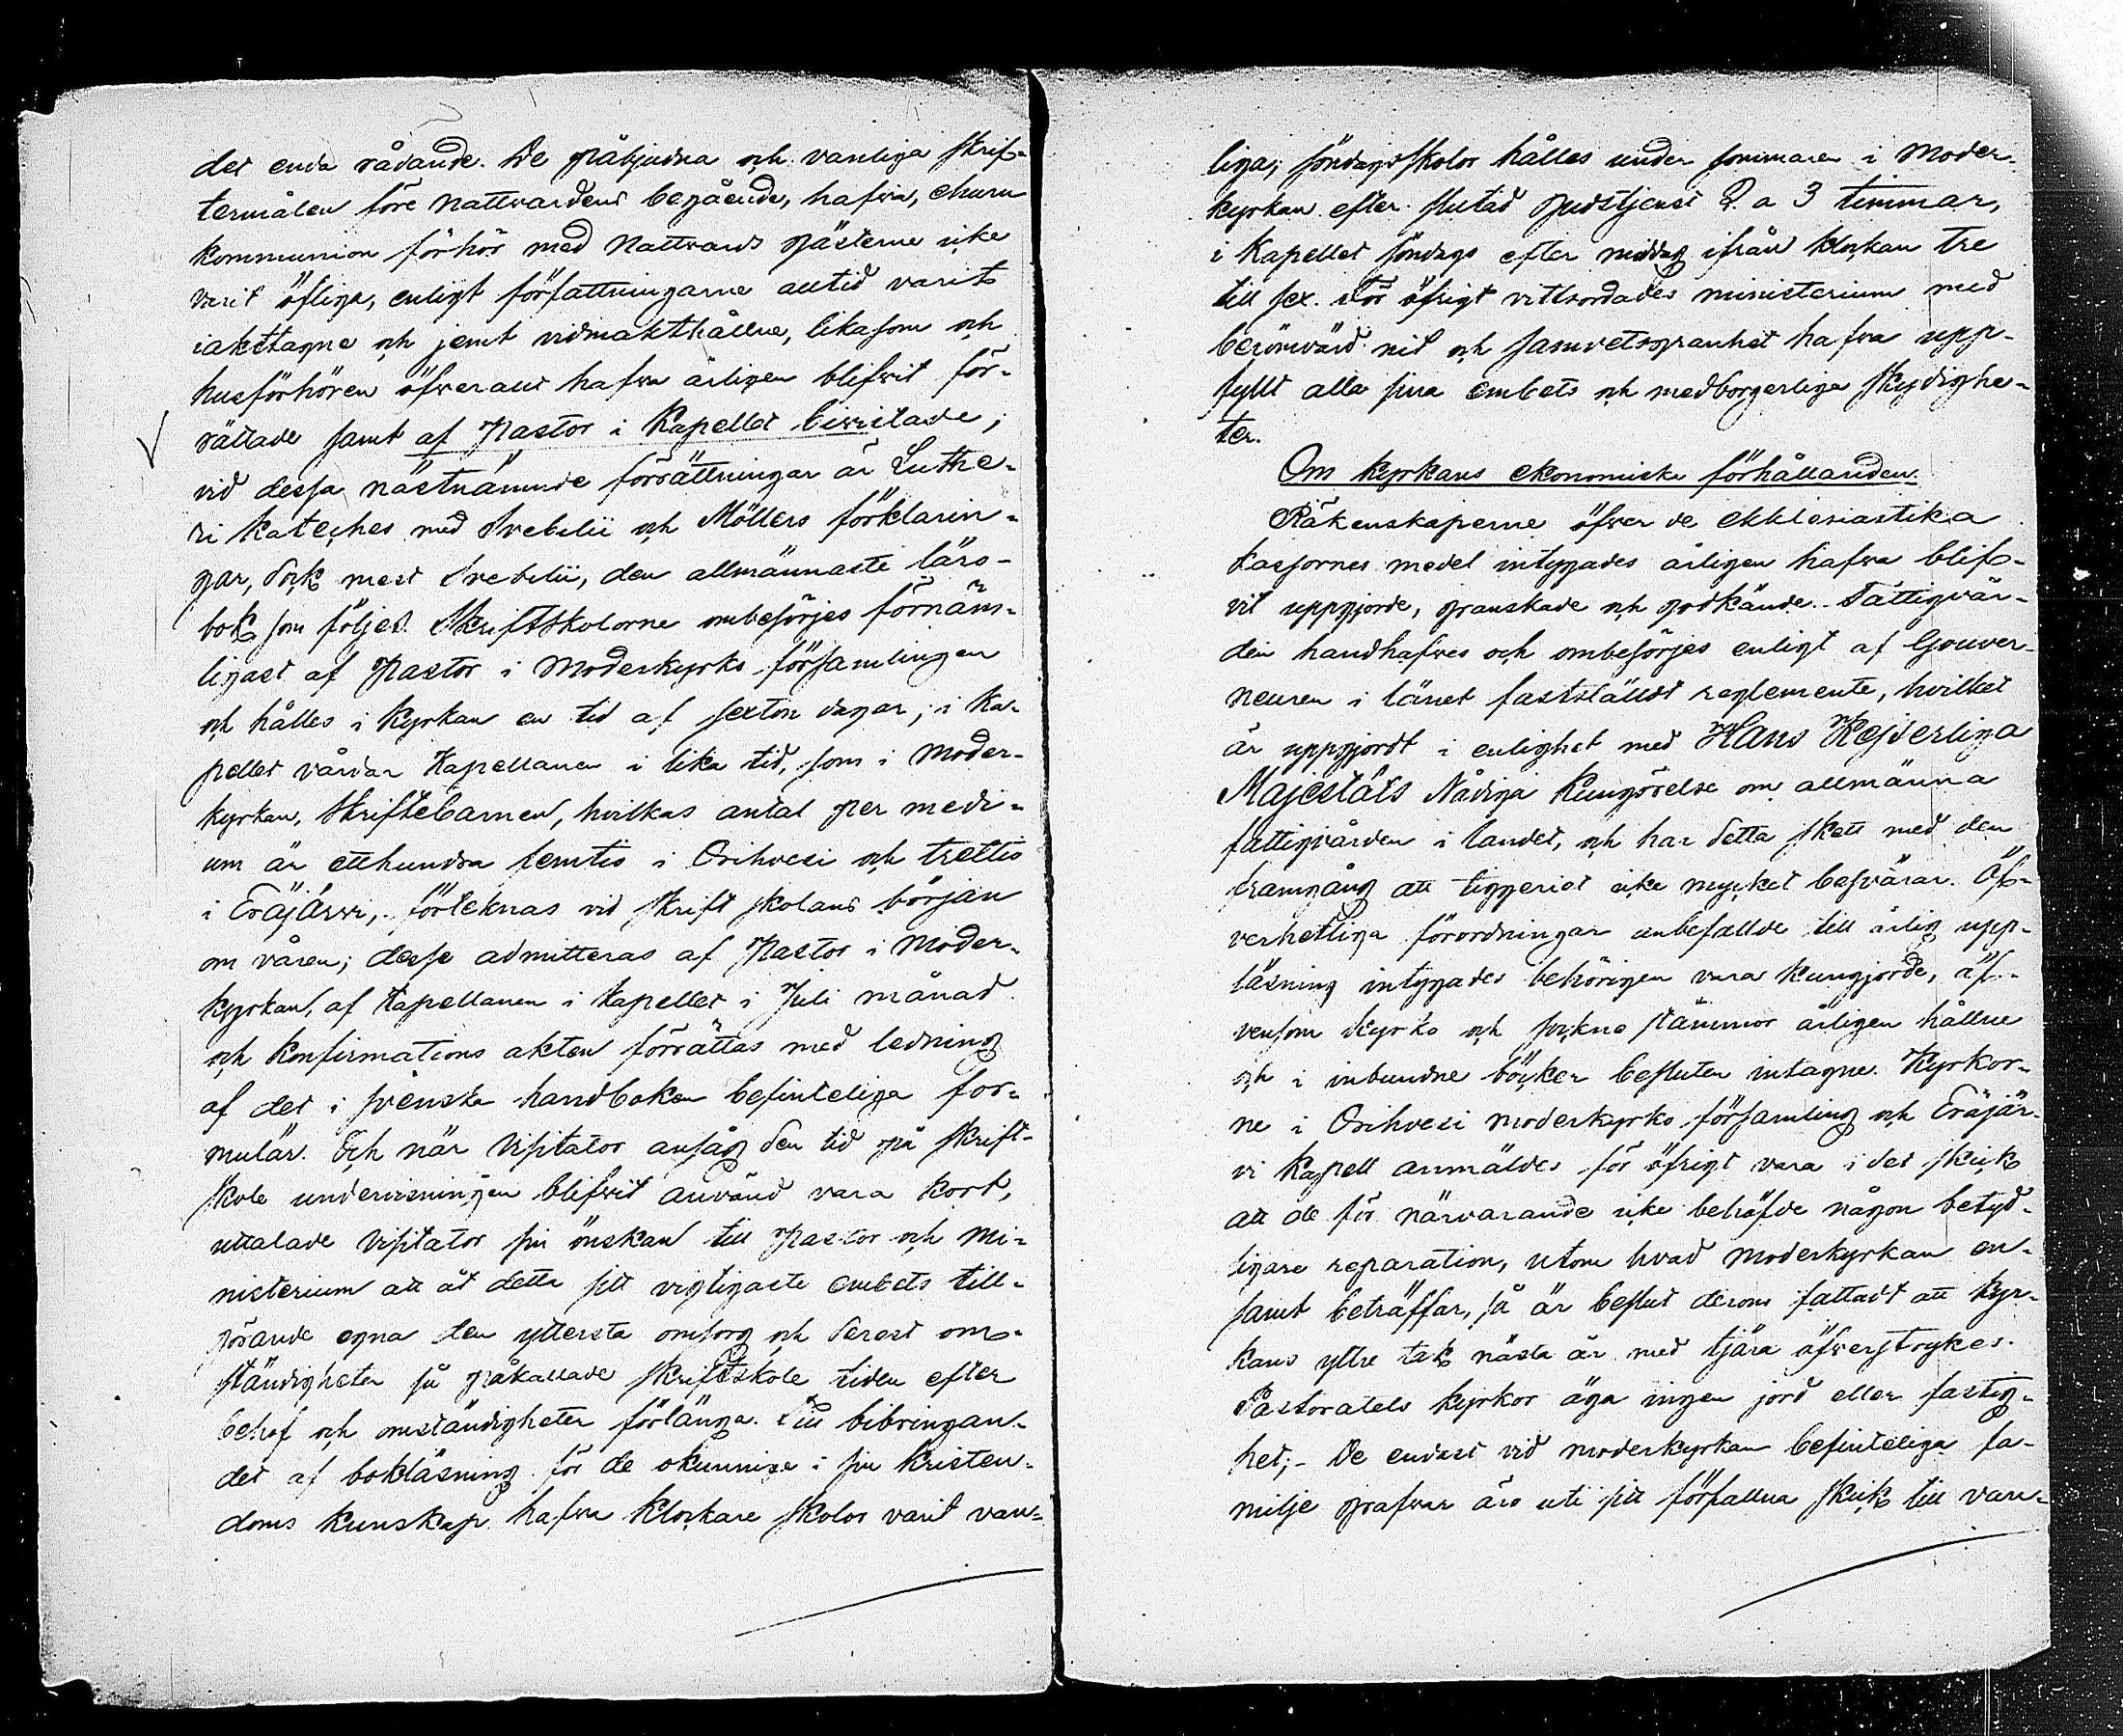 det enda rådande. De påbjudna och vanliga skrif-
termålen före Nattvardens begående, hafva, ehuru
kommunion förhör med Nattvards gästerne icke
varit öfliga, enligt författningarne alltid varit
iakttagne och jemt vidmakthållne, likasom och
husförhören öfverallt hafva årligen blifvit för-
rättade samt af Pastor i Kapellet bivistade;
vid dessa nästnämnde förrättningar är Luthe-
ri Kateches med Svebilii och Möllers förklarin-
gar, dock mest Svebilii, den allmännaste läro-
bok som följes. Skriftskolorne ombesörjes förnäm-
ligast af Pastor i Moderkyrko församlingen
och hålles i Kyrkan en tid af sexton dagar; i Ka-
pellet vårdar Kapellanen i lika tid, som i Moder-
kyrkan, Skriftebarnen, hvilkas antal per medi-
um är etthundra femtio i Orihvesi och trettio
i Eräjärvi, förteknas vid skrift skolans början
om våren; desse admitteras af Pastor i Moder-
kyrkan, af Kapellanen i Kapellet i Juli månad
och Konfirmations akten förrättas med ledning
af det i svenska handboken befinteliga for-
mulär. Och när Visitator ansåg den tid på skrift-
skole undervisningen blifvit använd vara kort,
uttalade Visitator sin önskan till Pastor och Mi-
nisterium att åt detta sitt vigtigaste embets till-
görande egna den yttersta omsorg och derest om-
ständigheter så påkallade skriftskole tiden efter
behof och omständigheter förlänga. Till bibringan-
det af bokläsning för de okunnige i sin Kristen-
doms kunskap hafva Klockare skolor varit van-
liga; söndagsskolor hålles under sommaren i Moder-
kyrkan efter slutad gudstjenst 2 a 3 timmar,
i Kapellet söndags efter middag ifrån klockan tre
till sex. För öfrigt vittsordades ministerium med
berömvärd nit och samvetsgranhet hafva upp-
fyllt alla sina embets och medborgerliga skyldighe-
ter.
Om kyrkans ekonomiska förhållanden.
Räkenskaperne öfver de ekklesiastika
kassornes medel intygades årligen hafva blif-
vit uppgjorde, granskade och godkände. Fattigvår-
den handhafves och ombesörjes enligt af Gouver-
neuren i länet fastställdt reglemente, hvilket
är uppgjordt i enlighet med Hans Kejserliga
Majestäts Nådiga Kungörelse om allmänna
fattigvården i landet, och har detta skett med den
framgång att tiggeriet icke mycket besvärar. Öf-
verhetliga förordningar anbefallde till årlig upp-
läsning intygades behörigen vara kungjorde, äf-
vensom kyrko och sockne stämmor årligen hållne
och i inbundne böcker besluten intagne. Kyrkor-
ne i Orihvesi moderkyrko församling och Eräjär-
vi Kapell anmäldes för öfrigt vara i det skick
att de för närvarande icke behöfde någon betyd-
ligare reparation, utom hvad moderkyrkan en-
samt beträffar, så är beslut derom fattadt att kyr-
kans yttre tak nästa år med tjära öfverstrykes.
Pastoratets kyrkor äga ingen jord eller fastig-
het;- De endast vid moderkyrkan befinteliga fa-
milje grafvar äro uti sitt förfallna skick till van-